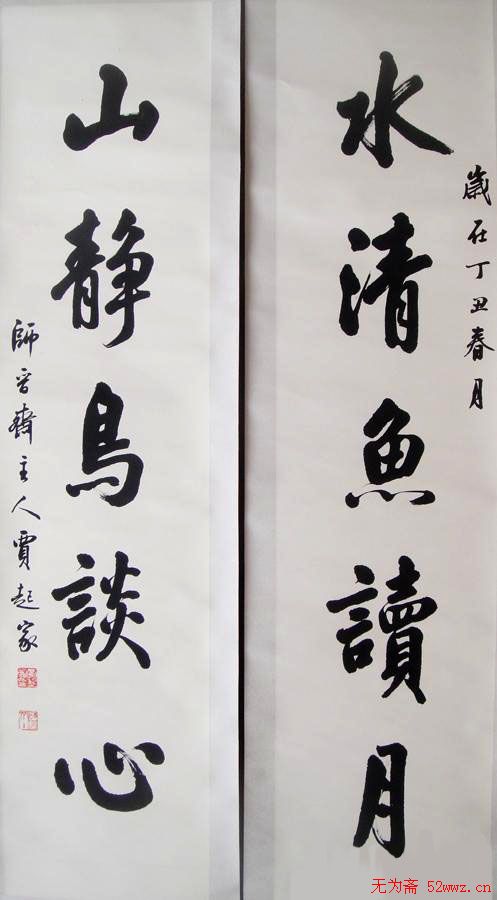 歲在丁丑春月
水清魚讀月
山静鳥談心
師晉齋主人賈起家
无为斋 52wwz.cn